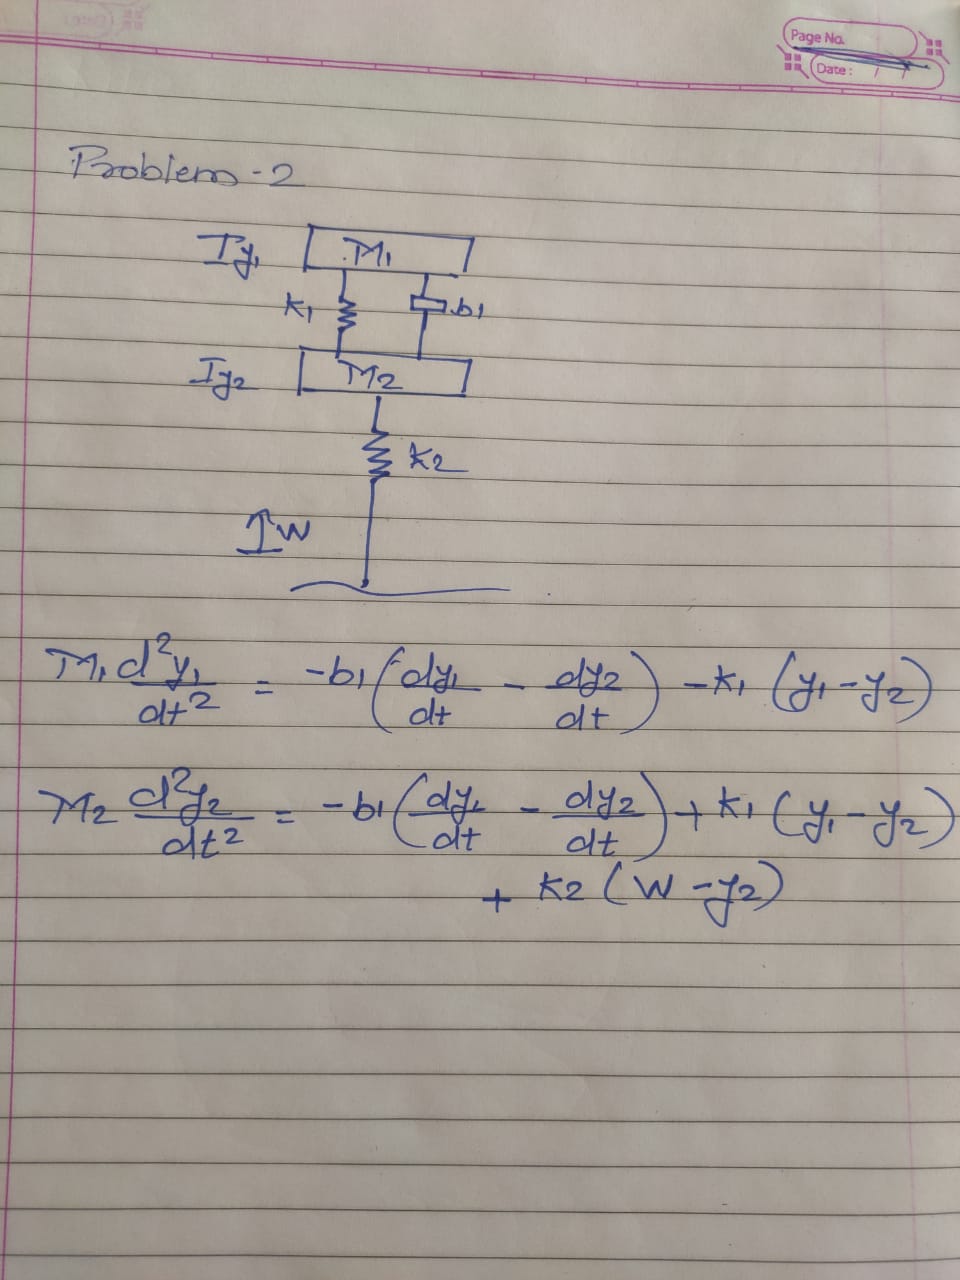 Page No.
Date: / /
Problem-2
Iy₁ M₁
k₁ b₁
Iy₂ M₂
k₂
↑W
M₁ d²y₁/dt² = -b₁ (dy₁/dt - dy₂/dt) - k₁ (y₁ - y₂)
M₂ d²y₂/dt² = -b₁ (dy₁/dt - dy₂/dt) + k₁ (y₁ - y₂)
+ k₂ (W - y₂)